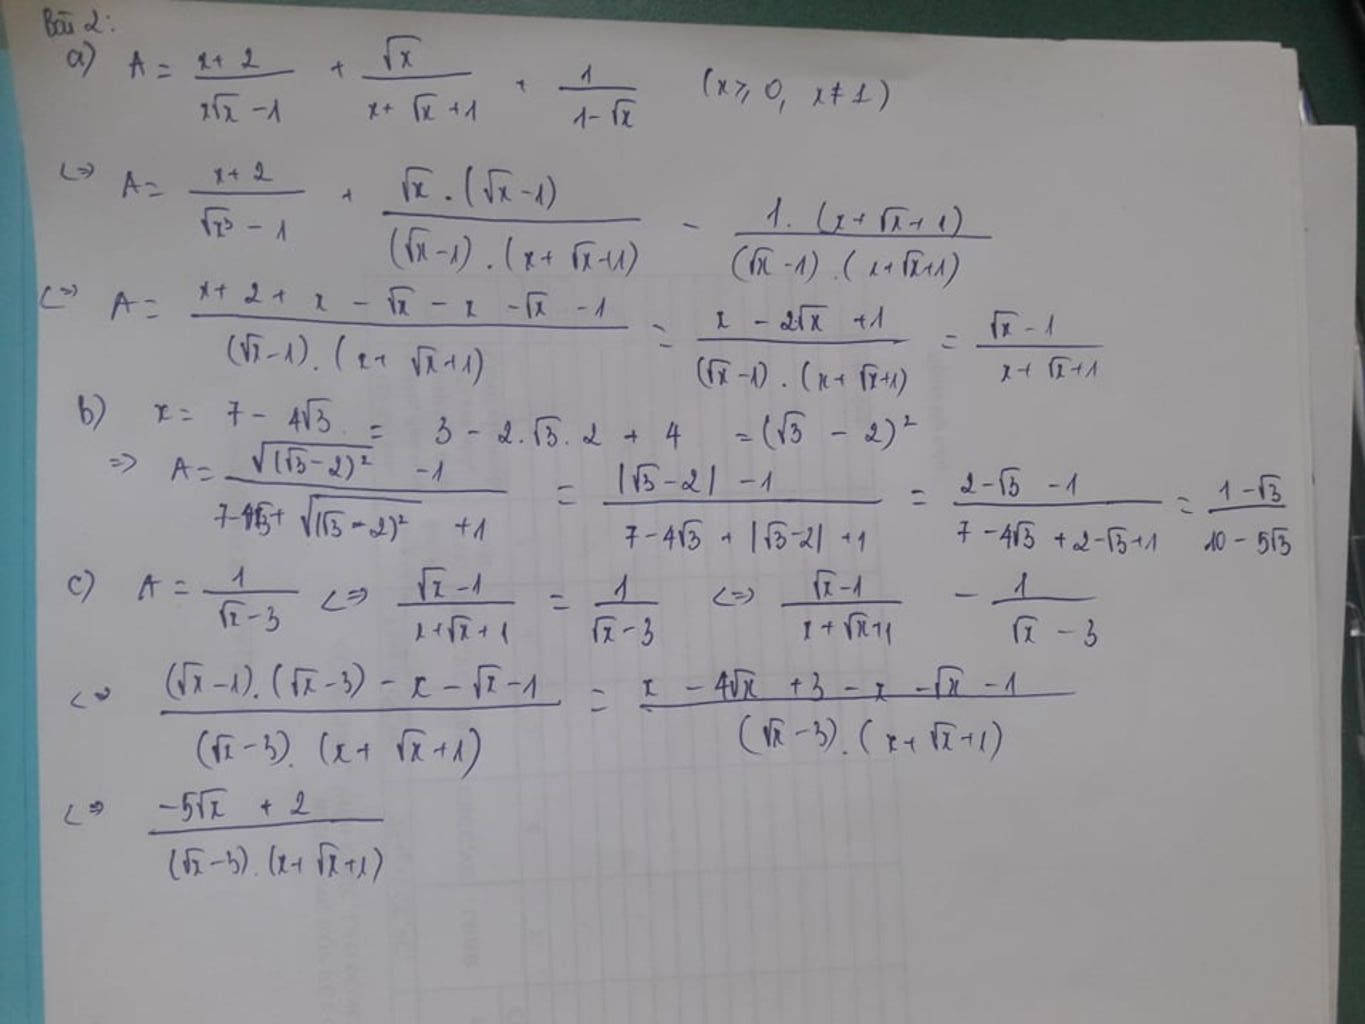 Bài 2:
a) A = \frac{x+2}{x\sqrt{x}-1} + \frac{\sqrt{x}}{x+\sqrt{x}+1} + \frac{1}{1-\sqrt{x}} (x ≥ 0, x ≠ 1)
<=> A = \frac{x+2}{\sqrt{x^3}-1} + \frac{\sqrt{x}.(\sqrt{x}-1)}{(\sqrt{x}-1).(x+\sqrt{x}+1)} - \frac{1.(x+\sqrt{x}+1)}{(\sqrt{x}-1).(x+\sqrt{x}+1)}
<=> A = \frac{x+2+x-\sqrt{x}-x-\sqrt{x}-1}{(\sqrt{x}-1).(x+\sqrt{x}+1)} = \frac{x-2\sqrt{x}+1}{(\sqrt{x}-1).(x+\sqrt{x}+1)} = \frac{\sqrt{x}-1}{x+\sqrt{x}+1}
b) x = 7 - 4\sqrt{3} = 3 - 2.\sqrt{3}.2 + 4 = (\sqrt{3} - 2)^2
=> A = \frac{\sqrt{(\sqrt{3}-2)^2} - 1}{7-4\sqrt{3}+\sqrt{(\sqrt{3}-2)^2}+1} = \frac{|\sqrt{3}-2| - 1}{7-4\sqrt{3}+|\sqrt{3}-2|+1} = \frac{2-\sqrt{3}-1}{7-4\sqrt{3}+2-\sqrt{3}+1} = \frac{1-\sqrt{3}}{10-5\sqrt{3}}
c) A = \frac{1}{\sqrt{x}-3} <=> \frac{\sqrt{x}-1}{x+\sqrt{x}+1} = \frac{1}{\sqrt{x}-3} <=> \frac{\sqrt{x}-1}{x+\sqrt{x}+1} - \frac{1}{\sqrt{x}-3}
<=> \frac{(\sqrt{x}-1).(\sqrt{x}-3)-x-\sqrt{x}-1}{(\sqrt{x}-3).(x+\sqrt{x}+1)} = \frac{x-4\sqrt{x}+3-x-\sqrt{x}-1}{(\sqrt{x}-3).(x+\sqrt{x}+1)}
<=> \frac{-5\sqrt{x}+2}{(\sqrt{x}-3).(x+\sqrt{x}+1)}